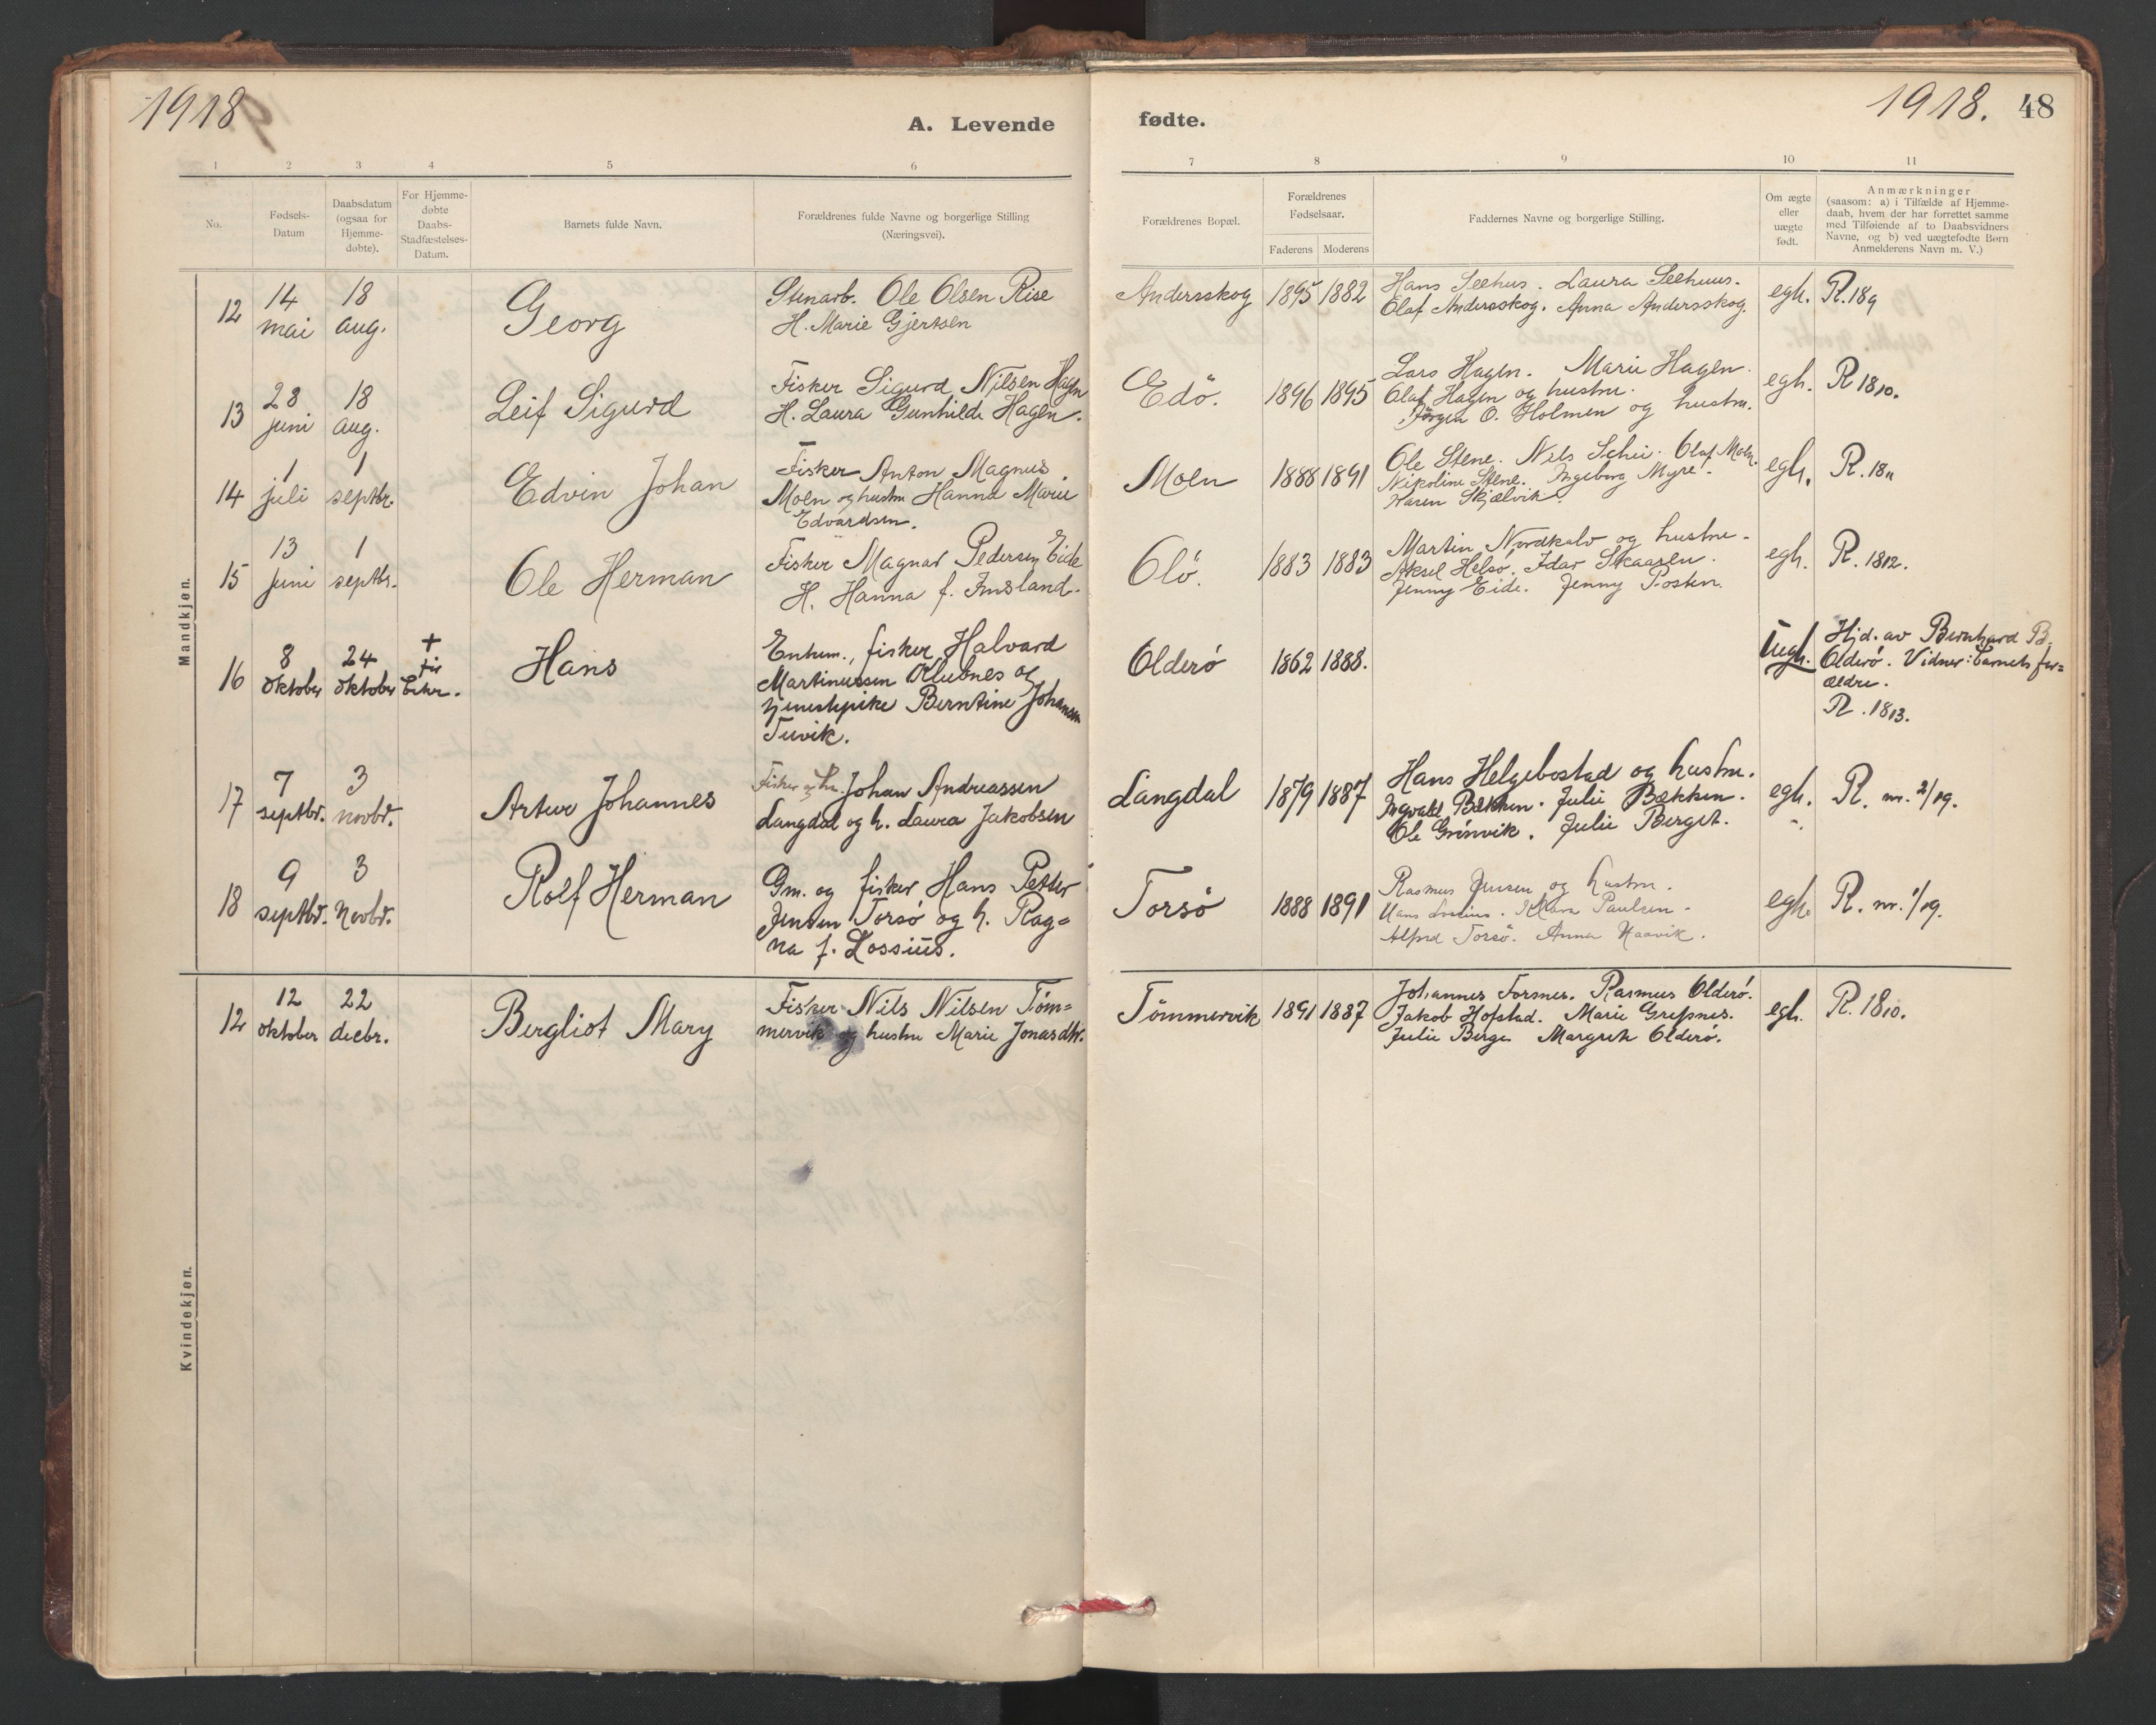 1918
A. Levende
fødte.
1918. 48
1 2 3 4 5 6 7 8 9 10 11
No.
Fødsels-
Datum
Daabsdatum
(ogsaa for
Hjemme-
døbte).
For Hjemme-
døbte
Daabs-
Stadfæstelses-
Datum.
Barnets fulde Navn.
Forældrenes fulde Navne og borgerlige Stilling
(Næringsvei).
Forældrenes Bopæl.
Forældrenes
Fødselsaar.
Faderens Moderens
Faddernes Navne og borgerlige Stilling.
Om ægte
eller
uægte
født.
Anmærkninger
(saasom: a) i Tilfælde af Hjemme-
daab, hvem der har forrettet samme
med Tilføiende af to Daabsvidners
Navne, og b) ved uægtefødte Børn
Anmelderens Navn m. V.)
Mandkjøn.
12
14
mai
18
aug.
Georg
Stenarb. Ole Olsen Rise
H. Marie Gjertsen
Andersskog
1895 1882
Hans Seehus. Laura Seehuus.
Olaf Andersskog. Anna Andersskog.
egh.
R. 189
13
28
juni
18
aug.
Leif Sigurd
Fisker Sigurd Nilsen Hagen
H. Laura Gunhilde Hagen.
Edö.
1896 1895
Lars Hagen. Marie Hagen.
Olaf Hagen og hustru.
Jörgen O. Holmen og hustru.
egh.
R 1810.
14
1
juli
1
septbr.
Edvin Johan
Fisker Anton Magnus
Moen og hustru Hanna Marie
Edvardsen.
Moen
1888 1891
Ole Stene. Nils Olaf Moen.
Nikoline Stene. Ingeborg Myre.
Karen Skjælvik.
egh.
R. 1811
15
13
juni
1
septbr.
Ole Herman
Fisker Magnar Pedersen Eide
H. Hanna f. Imsland.
Olö.
1883 1883
Martin Nordkalv og hustru.
Aksel Helsö. Idar Skaaren.
Jenny Eide. Jenny Posten.
egh.
R. 1812.
16
8
oktober
24
oktober
+
Hans
Enkem., fisker Halvard
Martinussen Ollubnes og
tjenestepike Berntine Johansen
Tuvik.
Olderö
1862 1888.
Uegh.
Hjd. av Bernhard B.
Olderö. Vidner: barnets for=
ældre.
R. 1813.
17
7
septbr.
3
novbr.
Artur Johannes
Fisker Johan Andreassen
Langdal og h. Laura Jakobsen
Langdal
1879 1887
Hans Helgebostad og hustru.
Ingvald Bækken. Julie Bækken.
Ole Grönvik. Julie Berget.
egh.
R. nr. 2/19.
18
9
septbr.
3
Novbr.
Rolf Herman
Gm. og fisker Hans Petter
Jensen Torsö og h. Rag=
na f. Lossius.
Torsö
1888 1891
Rasmus Jensen og hustru.
Hans Klara Paulsen.
Alfred Torsö. Anna Naavik.
egh.
R. nr. 1/19.
Kvindekjøn.
12
12
oktober
22
decbr.
Bergliot Mary
Fisker Nils Nilsen Töm=
mervik og hustru Marie Jonasdtr.
Tömmervik
1891 1887
Johannes Forsnes. Rasmus Olderö.
Jakob Hofstad. Marie Grefsnes.
Julie Berge Margreth Olderö.
egh.
R. 1810.